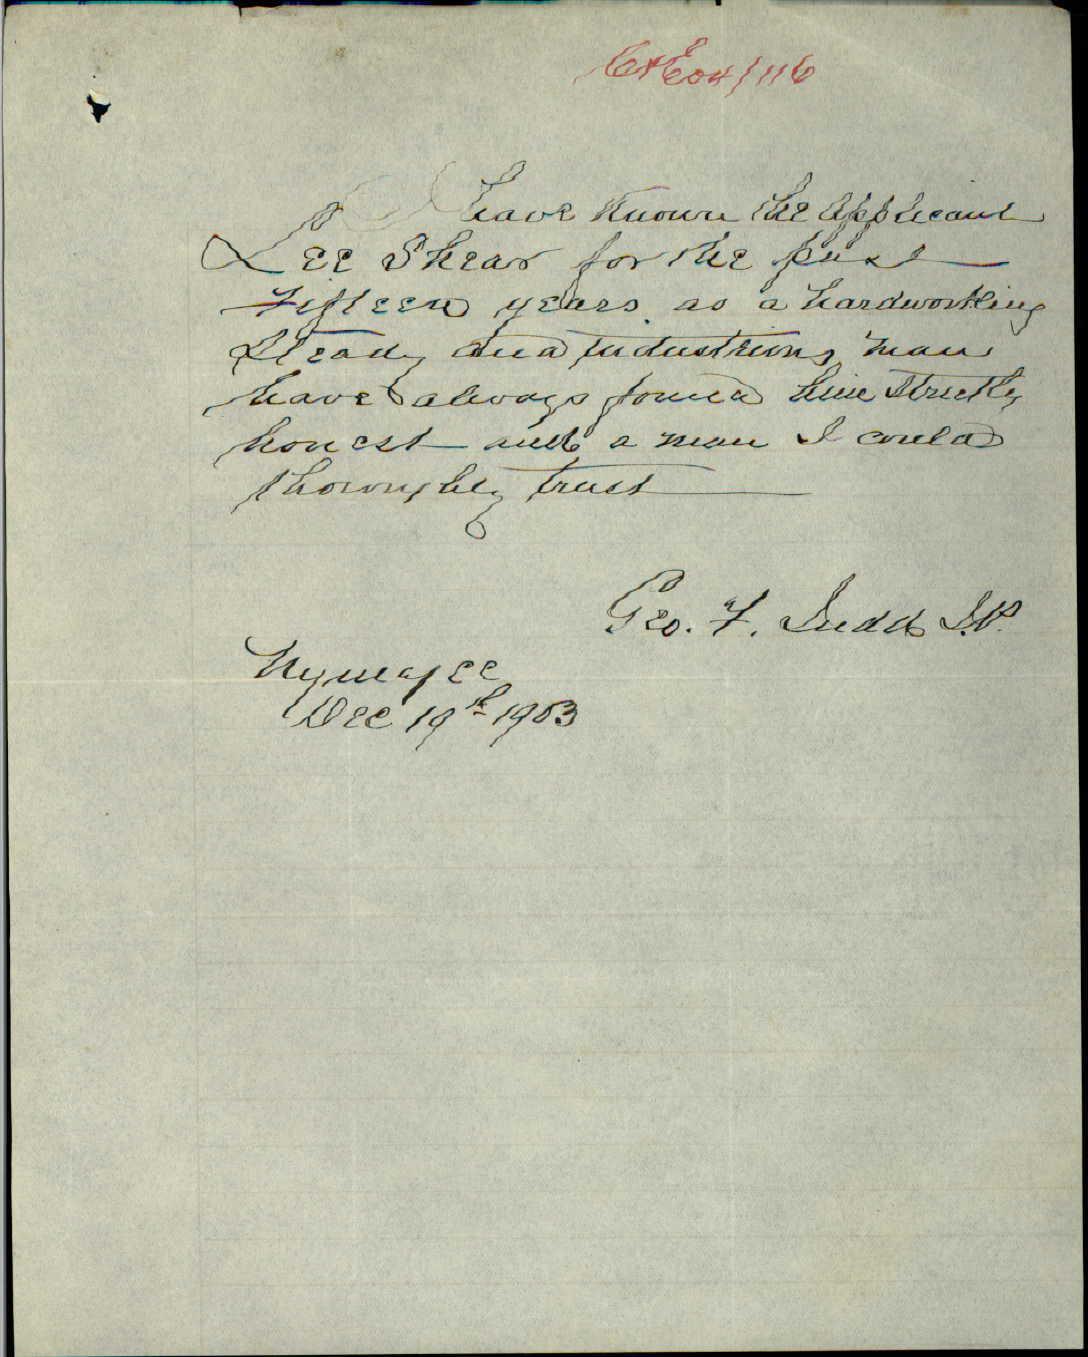 C+E 04/116
I have known the applicant
Lee Shear for the past
Fifteen years. as a hardworking
Steady and industrious man
have always found him strictly
honest and a man I could
thoroughly trust
Geo. F. Judd J.P.
Nymagee
Dec 19th 1903